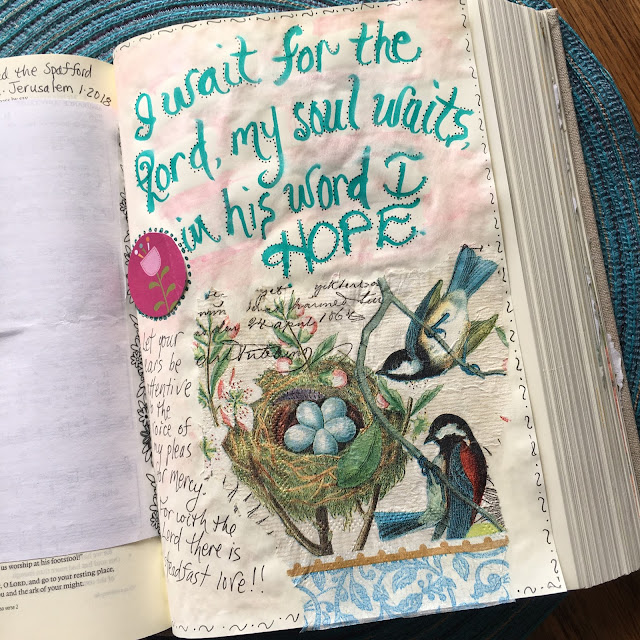 d the Spafford
Jerusalem 1.2018
us worship at his footstool!"
O LORD, and go to your resting place,
ou and the ark of your might.
I wait for the
Lord, my soul waits,
in his word I
HOPE.
april
let your
ears be
attentive
the
oice of
my pleas
for mercy.
For with the
Lord there is
steadfast love!!